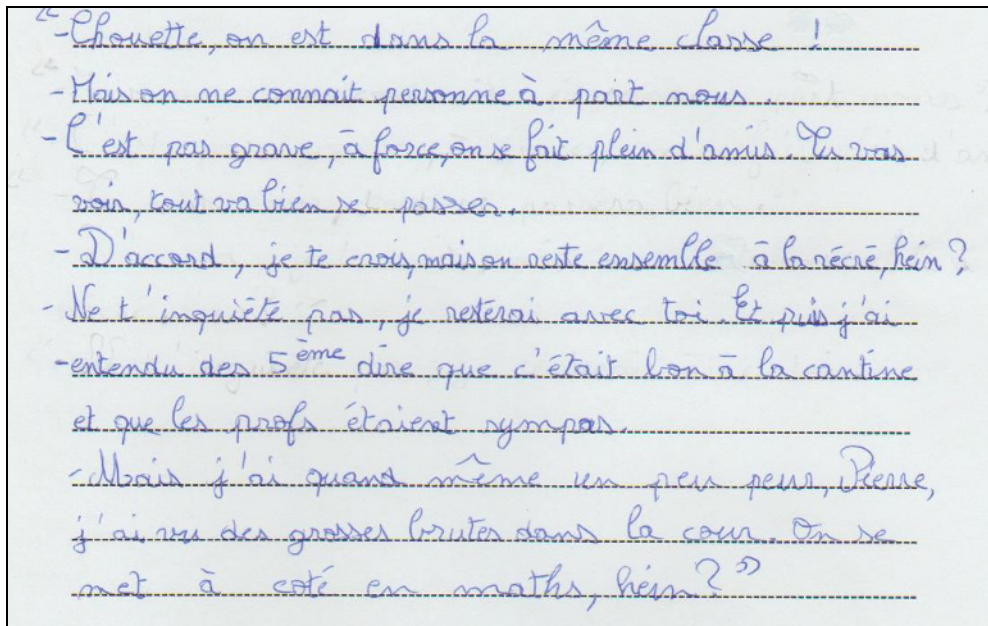 « -Chouette, on est dans la même classe !
-Mais on ne connait personne à part nous.
-C'est pas grave, à force, on se fait plein d'amis. Tu vas
voir, tout va bien se passer.
-D'accord, je te crois, mais on reste ensemble à la récré, hein ?
-Ne t'inquiète pas, je resterai avec toi. Et puis j'ai
-entendu des 5ème dire que c'était bon à la cantine
et que les profs étaient sympas.
-Mais j'ai quand même un peu peur, Pierre,
j'ai vu des grosses brutes dans la cour. On se
met à coté en maths, hein ? »